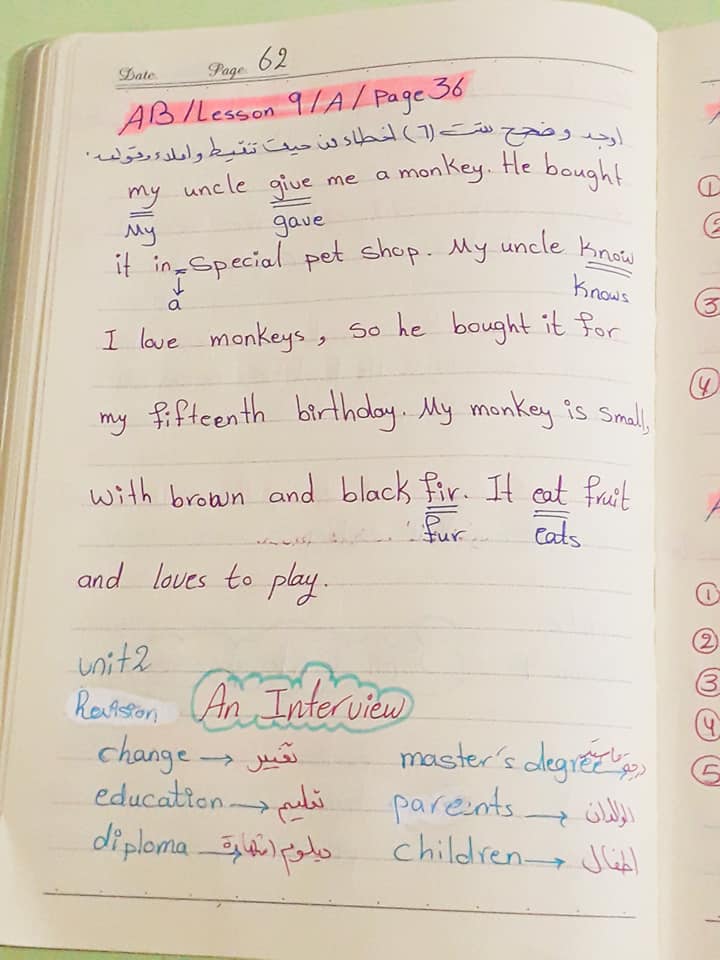 Date Page 62
AB/Lesson 9/A/Page 36
اوجد وصحح ست (٦) اخطاء من حيث تنقيط واملاء وقواعد.
my uncle give me a monkey. He bought
My gave
it in special pet shop. My uncle know
a knows
I love monkeys, so he bought it for
my fifteenth birthday. My monkey is small,
with brown and black fir. It eat fruit
fur eats
and loves to play.
unit2
Revision An Interview
change → تغيير master's degree → درجة ماستر
education → تعليم pareints → الوالدان
diploma → دبلوم children → اطفال
1
2
3
4
1
2
3
4
5